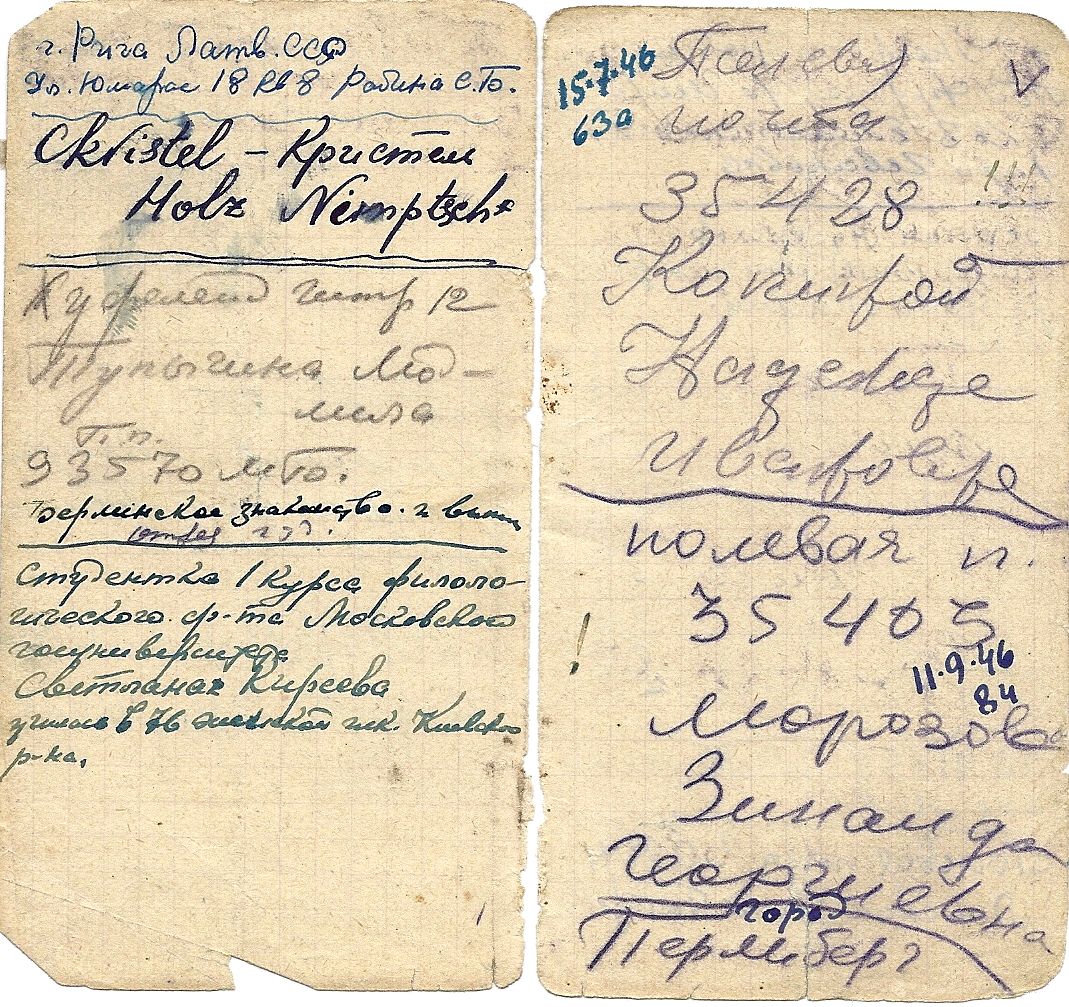 г. Рига Латв. ССР
Ул. Юмарас 18 кв 8 Рабина С.Б.
Ckristel – Кристел
Holz Nimptsch
штр 12
Тупыгина Люд–
мила
П.п.
93570
Берлинское знакомство. и
Студентка 1 курса филоло–
гического ф-та Московского
госуниверситета
Светлана Киреева
в 76 женской шк. Киевского
р-на.
15.7.46
63а
Полевая
почта
35428
!!!
Надежде
Ивановне
полевая п.
35403
!
11.9.46
84
Морозова
Зинаида
Георгиевна
город
Перлиберг